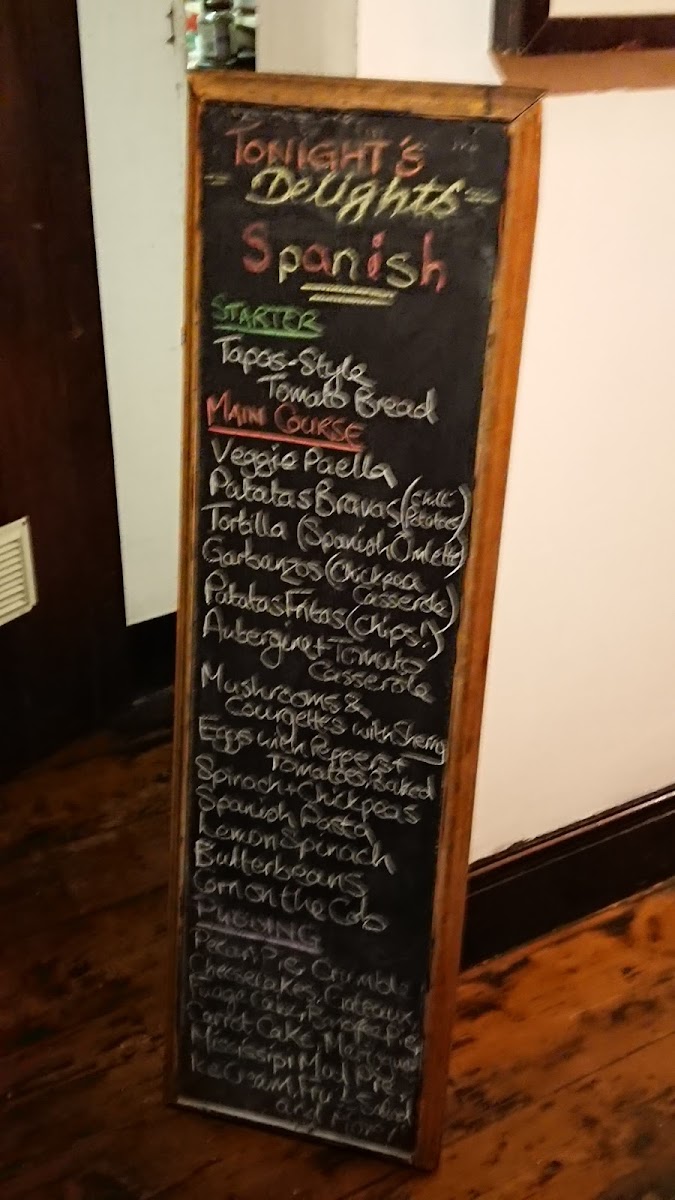 TONIGHT'S
Delights
Spanish
STARTER
Tapas-Style
Tomato Bread
MAIN COURSE
Veggie Paella
Patatas Bravas (Chilli Potatoes)
Tortilla (Spanish Omlette)
Garbanzos (Chickpea
Casserole)
Patatas Fritas (Chips!)
Aubergine + Tomato
Casserole
Mushrooms &
Courgettes with Sherry
Eggs with Peppers +
Tomatoes, Baked
Spinach + Chickpeas
Spanish Pasta
Lemon Spinach
Butterbeans
Corn on the Cob
PUDDING
Pecan Pie, Crumble
Cheesecakes, Gateaux,
Fudge Cake, Banoffee Pie,
Carrot Cake,
Mississippi Mud Pie,
Ice Cream, Fruit Salad
and More!